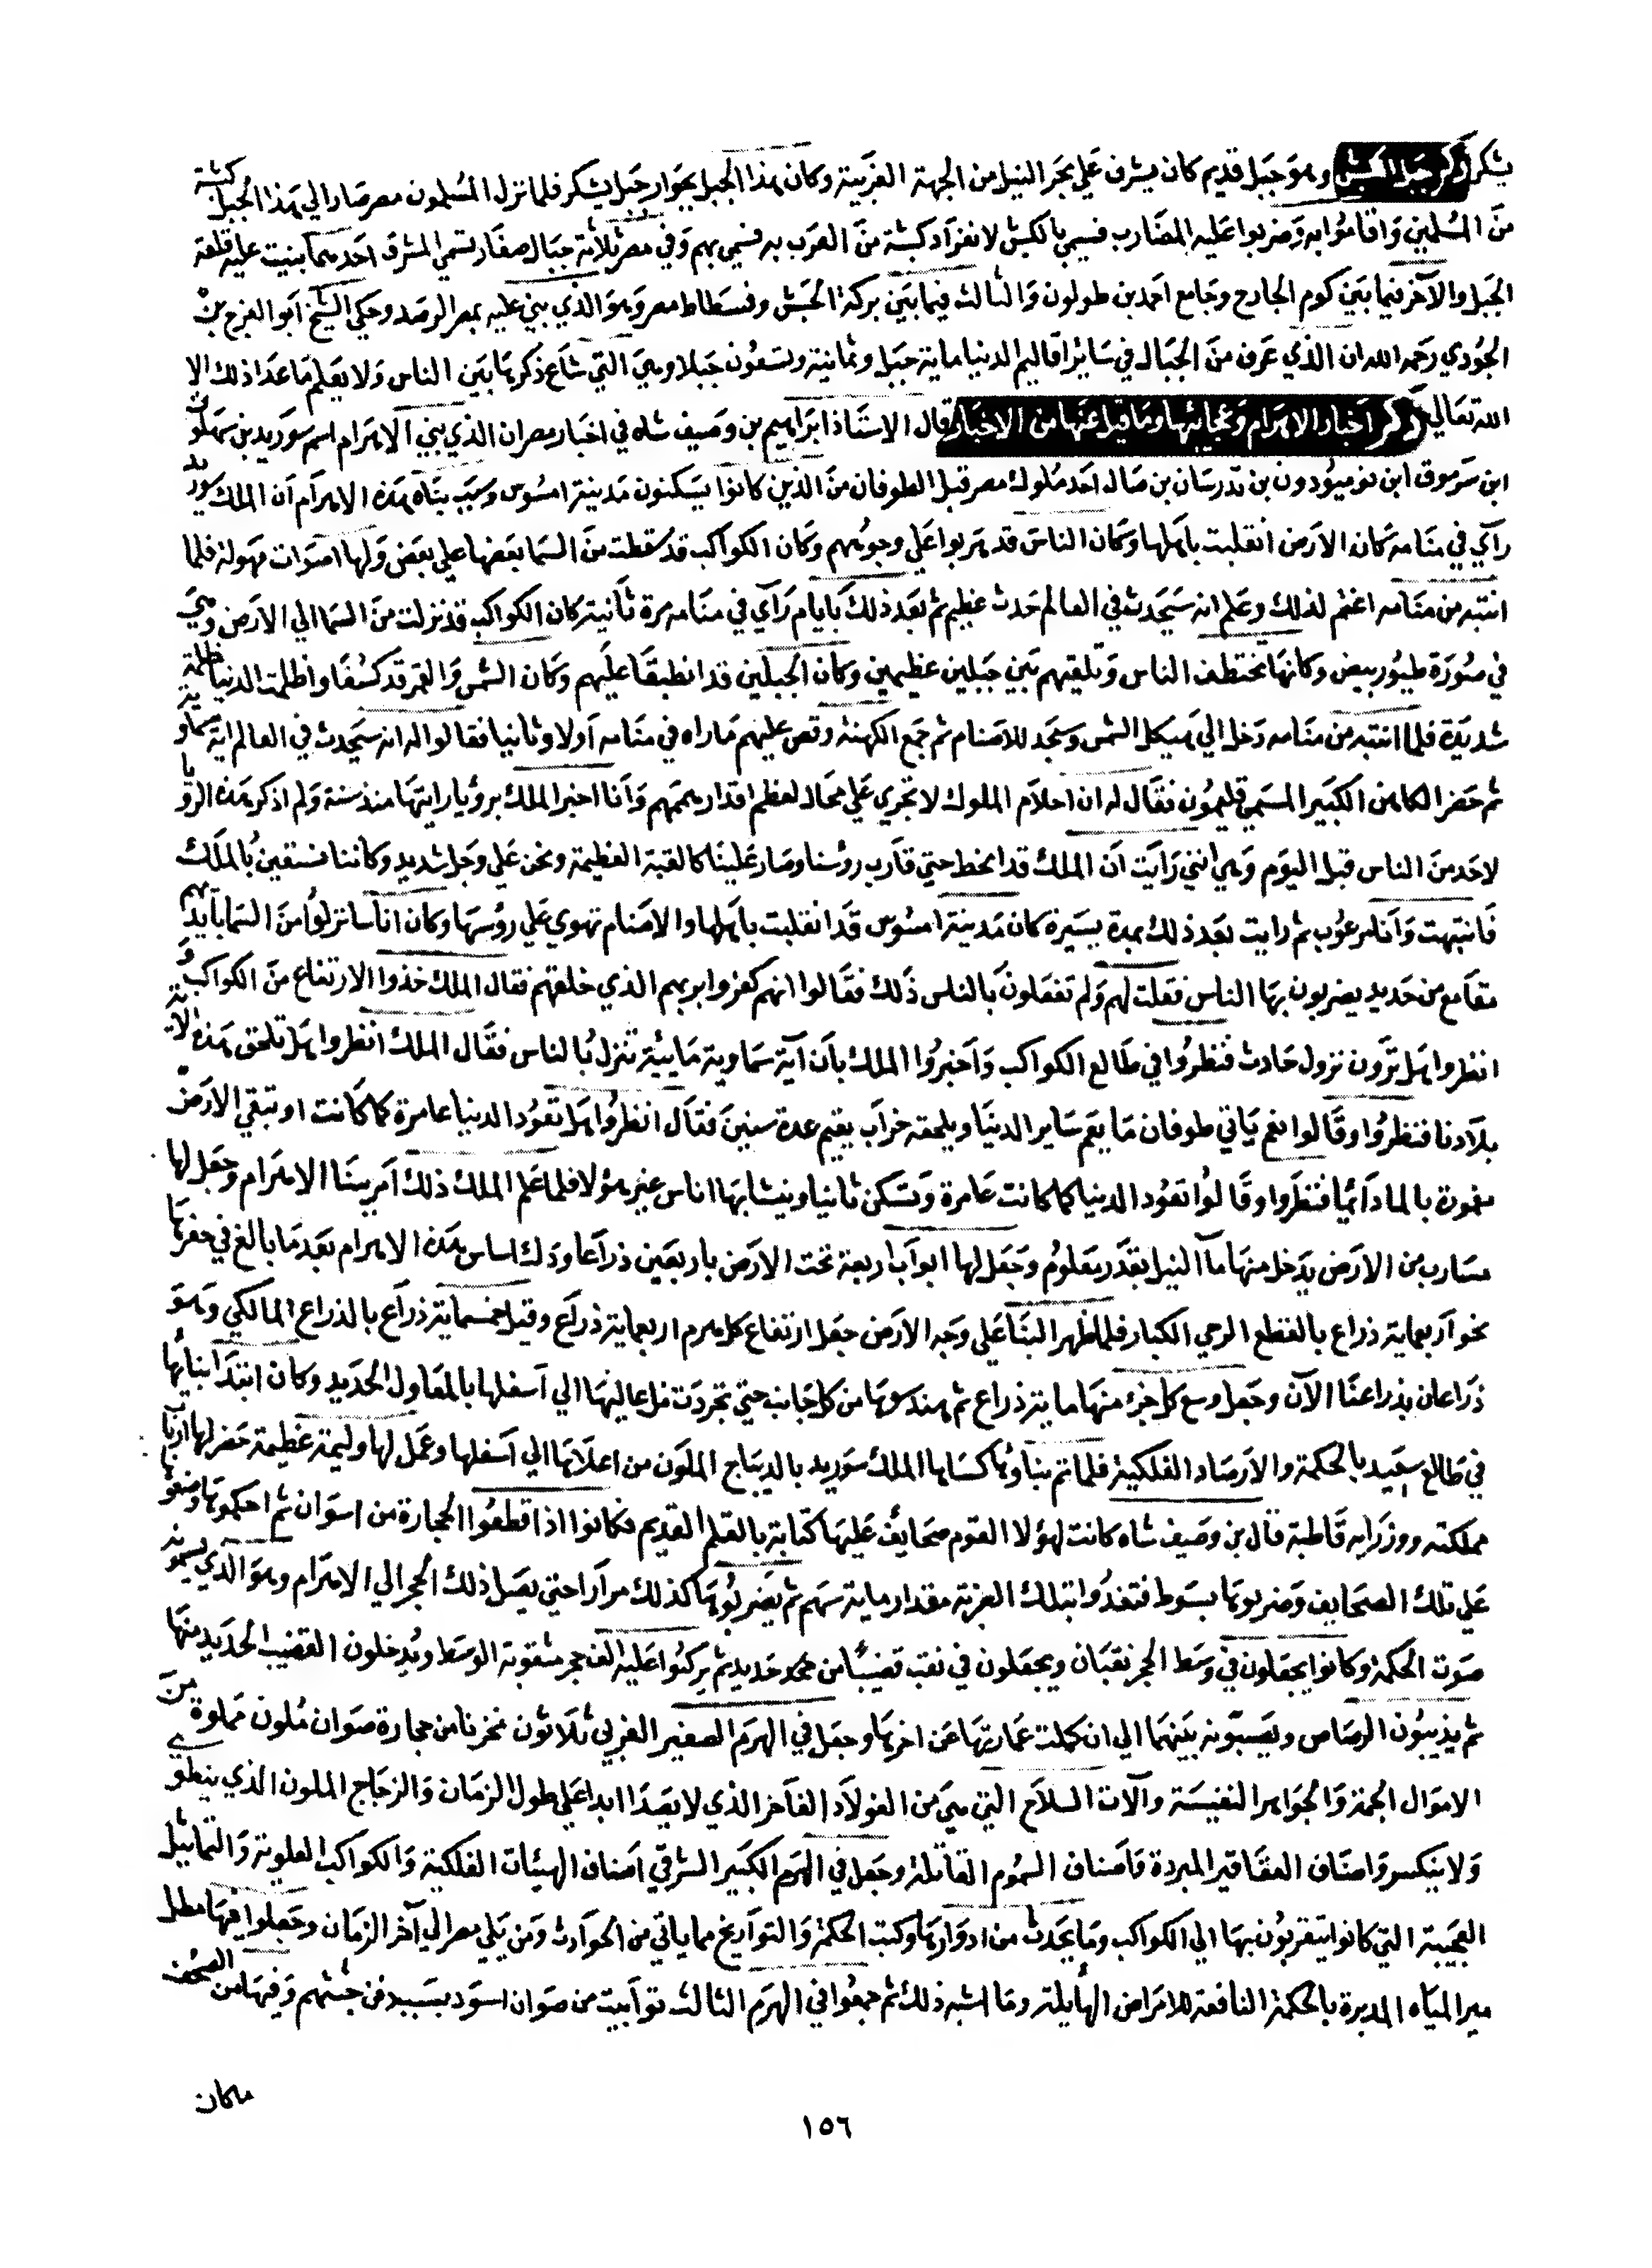 يشكر ذكر جبل الكبش وهو جبل قديم كان يشرف علي بحر النيل من الجهة الغربية وكان هذا الجبل بجوار جبل يشكر فلما نزل المسلمون مصر صار الي هذا الجبل كبشة
من المسلمين واقاموا به وضربوا عليه المضارب فسمي بالكبش لانفراد كبشة من العرب به فسمي بهم وفي مصر ثلاثة جبال صغار تسمي المشرف احدهما بنيت عليه قلعة
الجبل والآخر فيما بين كوم الجارح وجامع احمد بن طولون والثالث فيما بين بركة الحبش وفسطاط مصر وهو الذي بني عليه بمصر الرصد وحكي الشيخ ابو الفرج بن
الجودي رحمه الله ان الذي عرف من الجبال في سائر اقاليم الدنيا ماية جبل وثمانية وتسعون جبلا وهي التي شاع ذكرها بين الناس ولا يعلم ما عدا ذلك الا
الله تعالي ذكر اخبار الاهرام وعجائبها وما قيل عنها من الاخبار قال الاستاذ ابراهيم بن وصيف شاه في اخبار مصر ان الذي بني الاهرام اسم سوريد بن سهلوق
ابن سرموق ابن بن تدرسان بن صال احد ملوك مصر قبل الطوفان من الذين كانوا يسكنون مدينة امسوس وسبب بناه هذه الاهرام ان الملك سوريد
رآي في منامه كان الارض انقلبت باهلها وكان الناس قد هربوا علي وجوههم وكان الكواكب قد سقطت من السما بعضها علي بعض ولها اصوات مهولة فلما
انتبه من منامه اغتم لذلك وعلم انه سيحدث في العالم حدث عظيم ثم بعد ذلك بايام رآي في منامه مرة ثانية كان الكواكب قد نزلت من السما الي الارض وهي
في صورة طيور بيض وكانها تختطف الناس وتلقيهم بين جبلين عظيمين وكان الجبلين قد انطبقا عليهم وكان الشمس والقمر قد كسفا واظلمت الدنيا ظلمة
شديدة فلما انتبه من منامه دخل الي هيكل الشمس وسجد للاصنام ثم جمع الكهنة وقص عليهم ماراه في منامه اولا وثانيا فقالوا له انه سيحدث في العالم اية سماوية
ثم حضر الكاهن الكبير المسمي قليمون فقال له ان احلام الملوك لا تجري علي محال لعظم اقدارهمهم وانا اخبر الملك برؤيا رايتها منذ سنة ولم اذكر هذه الرؤيا
لاحد من الناس قبل اليوم وهي انني رايت ان الملك قد انحط حتي قارب رؤسنا وصار علينا كالقبة العظيمة ونحن علي وجل شديد وكاننا نستغيث بالملك
فانتبهت وانا مرعوب ثم رايت بعد ذلك بمدة يسيرة كان مدينة امسوس قد انقلبت باهلها والاصنام تهوي علي رؤسها وكان اناسا نزلوا من السما بايديهم
مقامع من حديد يضربون بها الناس فقلت لهم ولم تفعلون بالناس ذلك فقالوا انهم كفروا بربهم الذي خلقهم فقال الملك خذوا الارتفاع من الكواكب و
انظروا هل ترون نزول حادث فنظروا في طالع الكواكب واخبروا الملك بان آية سماوية مايية تنزل بالناس فقال الملك انظروا هل تلحق هذه الاية
بلادنا فنظروا وقالوا نعم ياتي طوفان ما يعم ساير الدنيا ويلحقه خراب يقيم عدة سنين فقال انظروا هل تعود الدنيا عامرة كما كانت او تبقي الارض
مغمورة بالما دائما فنظروا وقالوا تعود الدنيا كما كانت عامرة وتسكن ثانيا وينشا بها اناس غير هولا فلما علم الملك ذلك امر ببنا الاهرام وجعل لها
مسارب من الارض يدخل منها مآ النيل بقدر معلوم وجعل لها ابواب اربعة تحت الارض باربعين ذراعا ودك اساس هذه الاهرام بعد ما بالغ في حفرها
نحو آربعماية ذراع بالقطع الرحي الكبار فلما ظهر البنا علي وجه الارض جعل ارتفاع كل هرم اربعماية ذراع وقيل خمسماية ذراع بالذراع المالكي وهو
ذراعان بذراعنا الآن وجعل وسع كل جزء منها ماية ذراع ثم هندسوها من كل جانب حتي تجردت من اعاليها الي اسفلها بالمعاول الحديد وكان ابتدا بنائها
في طالع سعيد بالحكمة والارصاد الفلكية فلما تم بناوها كساها الملك سوريد بالديباج الملون من اعلاها الي اسفلها وعمل لها وليمة عظيمة حضر لها ارباب
مملكته ووزرايه قاطبة قال بن وصيف شاه كانت لهؤلا القوم صحايف عليها كتابة بالقلم القديم فكانوا اذا قطعوا الحجارة من اسوان ثم احكموها وضعوها
علي تلك الصحايف وضربوها بسوط فتغدوا بتلك الضربة مقدار ماية سهم ثم يضربوها كذلك مرارا حتي يصل ذلك الحجر الي الاهرام وهو الذي يسمونه
صوت الحكمة وكانوا يجعلون في وسط الحجر نقبان ويجعلون في نقب قضيبا من حديد ثم يركبوا عليه الف حجر مثقوبة الوسط ويدخلون القضيب الحديد منها
ثم يذيبون الرصاص ويصبونه بينهما الي ان كملت عمارتها عن اخرها وجعل في الهرم الصغير الغربي ثلاثون مخزنا من حجارة صوان ملون مملوة من
الاموال الجمة والجواهر النفيسة وآلات السلاح التي هي من الفولاد الفاخر الذي لا يصدا ابدا علي طول الزمان والزجاج الملون الذي ينطوي
ولا ينكسر واصناف العقاقير المبردة واصناف السموم القاتلة وجعل في الهرم الكبير الشرقي اصناف الهيئات الفلكية والكواكب العلوية والتماثيل
العجيبة التي كانوا يتقربون بها الي الكواكب وما يحدث من ادوارها وكتب الحكمة والتواريخ مما ياتي من الحوادث ومن يلي مصر الي آخر الزمان وجعلوا فيها
المياه المدبرة بالحكمة النافعة للامراض الهايلة وما اشبه ذلك ثم جمعوا في الهرم الثالث توابيت من صوان اسود بسبب دفن جثثهم وفيها من الصحف
ماكان
١٥٦